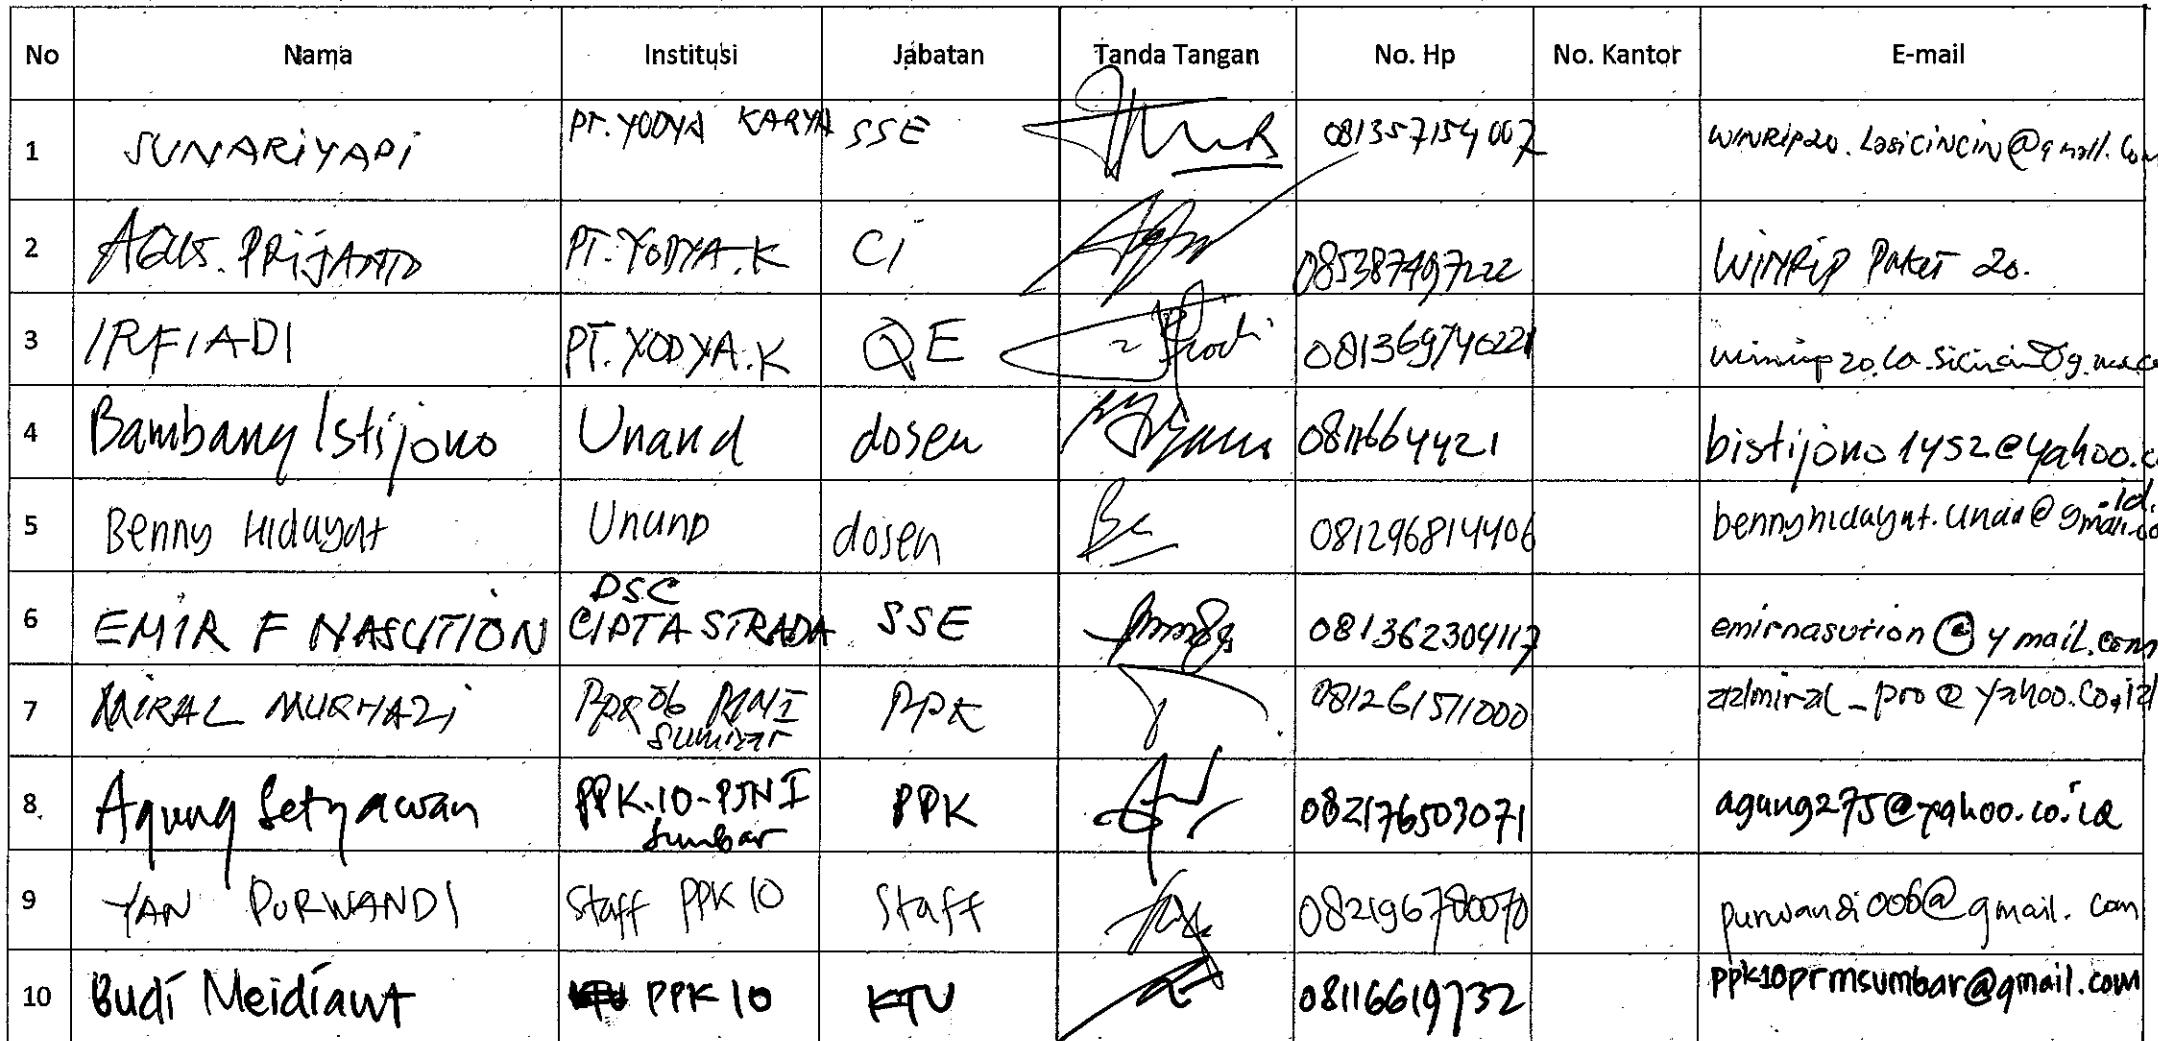 No Nama Institusi Jabatan Tanda Tangan No. Hp No. Kantor E-mail
1 SUNARIYADI PT. YODYA KARYA SSE 081357154007 WINRIP20.Lasicincin@gmail.com
2 AGUS. PRIJANTO PT. YODYA.K CI 085387497222 WINRIP PAKET 20.
3 IRFIADI PT. YODYA.K QE 081369740221
4 Bambang Istijono Unand dosen 0811664421 bistijono1452@yahoo.co.id.
5 Benny Hidayat Unand dosen 081296814406 bennyhidayat.unand@gmail.co
6 EMIR F NASUTION DSC CIPTA STRADA SSE 081362304117 emirnasution@ymail.com
7 PPK 06 Sumbar PPK 081261511000 azlmiral_pro@yahoo.co.id
8. Agung Setyawan PPK.10-PJN I Sumbar PPK 082176503071 agung275@yahoo.co.id
9 YAN PURWANDI Staff PPK 10 Staff 082196780070 purwandi006@gmail.com
10 Budi Meidiant PPK 10 KTU 08116619732 ppk10prmsumbar@gmail.com